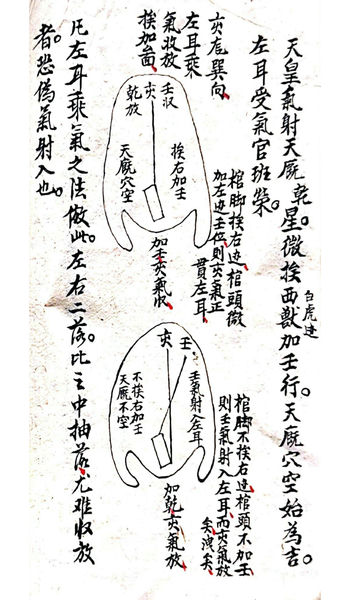 天皇氣射天廐乾星。微挨西獸加壬行。天廐穴空始為吉。
白虎边
左耳受氣官班榮。
亥龍巽向
左耳乘
氣收放
挨加啚
棺脚挨右边棺頭微
加左边壬位則亥氣正
貫左耳
壬収
亥
乾放
挨右加壬
天廐穴空
加壬亥氣収
棺脚不挨右边棺頭不加壬
則壬氣射入左耳而亥氣放
矣洩矣
壬
亥
壬氣射左耳
不挨右加壬
天廐不空
加乾亥氣放
凡左耳乘氣之法倣此。左右二落。比之中抽落尤难收放
者。恐偽氣射入也。